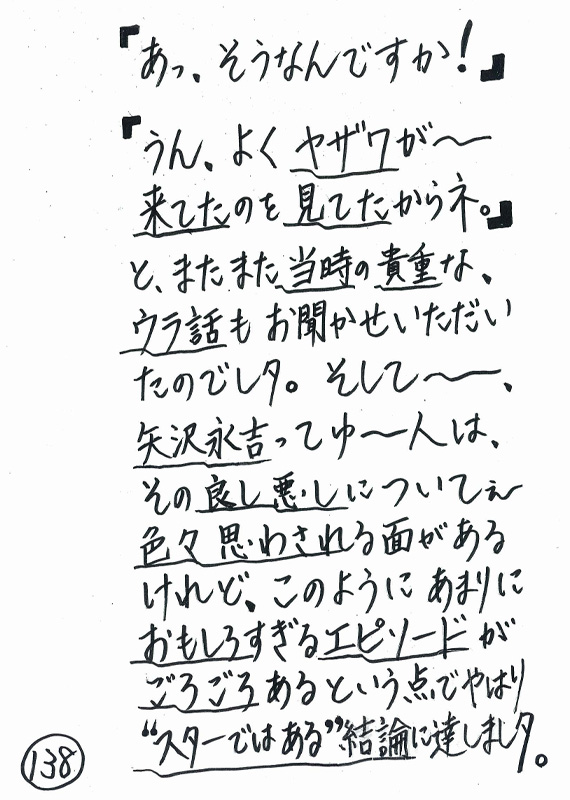 『あっ、そうなんですか!』
『うん、よくヤザワが〜
来てたのを見てたからネ。』
と、またまた当時の貴重な、
ウラ話もお聞かせいただい
たのでしタ。そして〜、
矢沢永吉ってゆ〜人は、
その良し悪しについてぇ〜
色々思わされる面がある
けれど、このようにあまりに
おもしろすぎるエピソードが
ごろごろあるという点でやはり
“スターではある”結論に達しましタ。
138